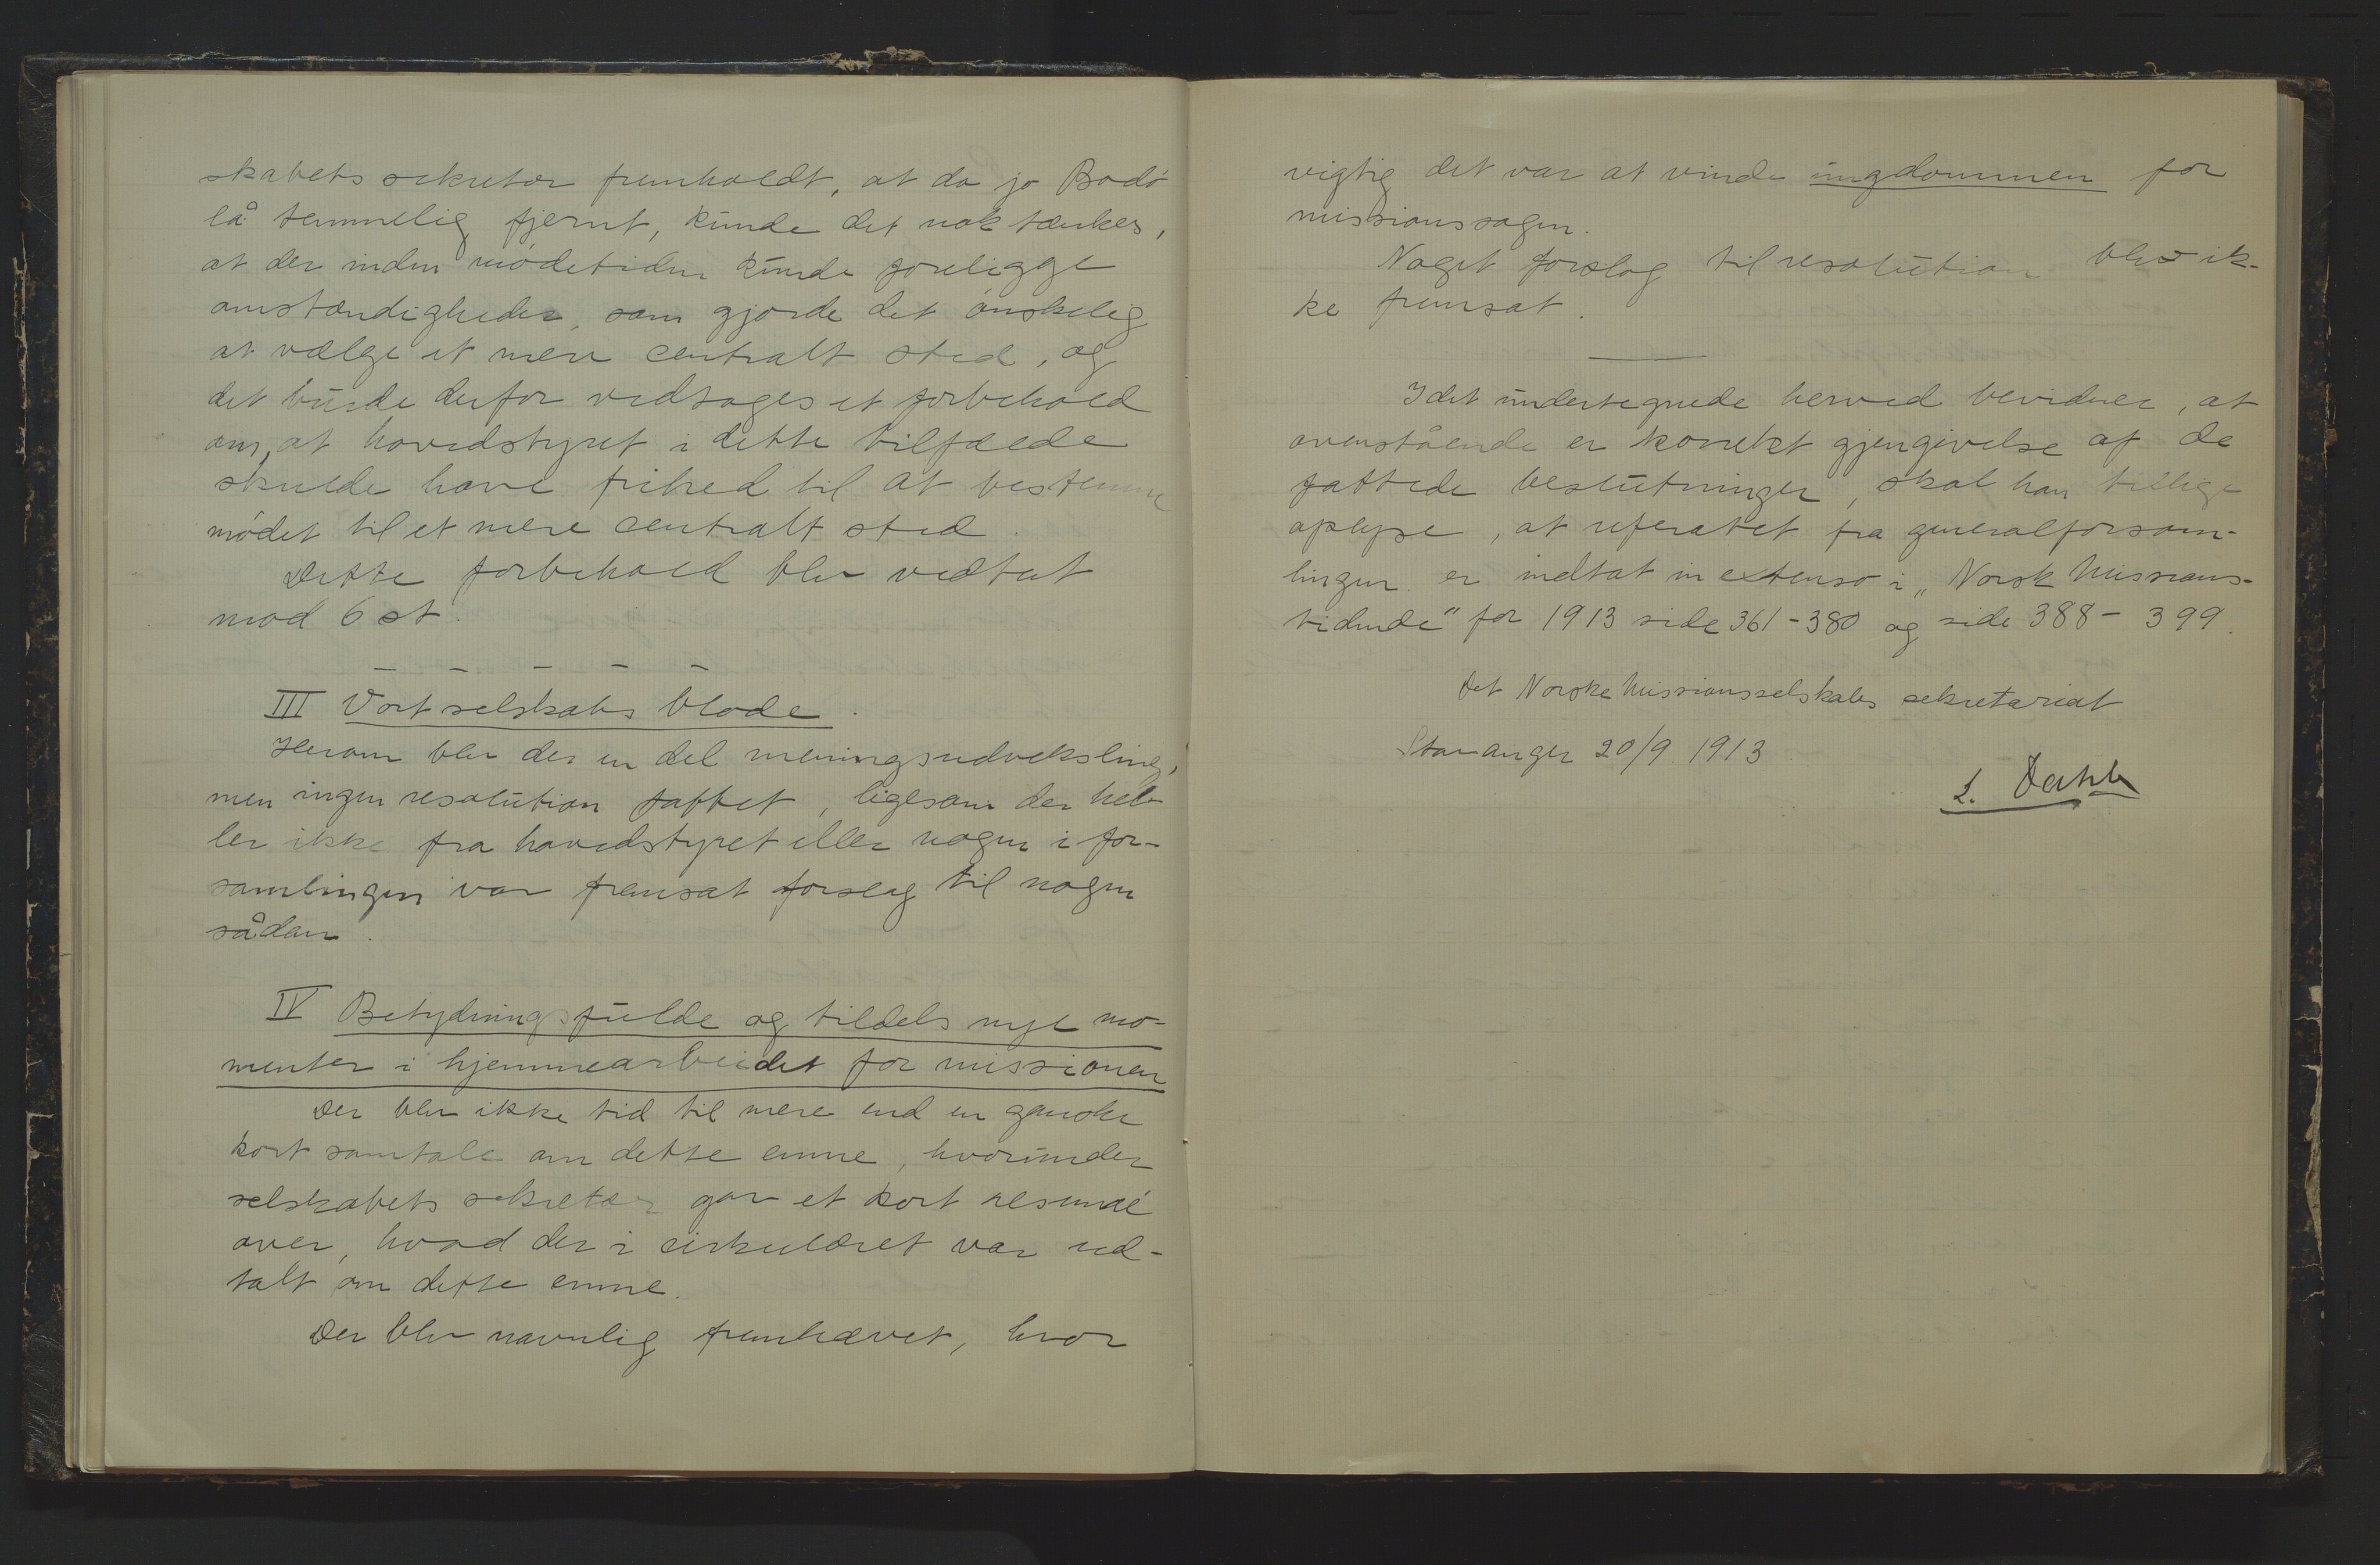 skabets sekretær fremholdt, at da jo Bodö
lå temmelig fjernt, kunde det nok tænkes,
at der inden mödetiden kunde foreligge
omstændigheder, som gjorde det önskelig
at vælge et mere centralt sted, og
det burde derfor vedtages et forbehold
om, at hovedstyret i dette tilfælde
skulde have frihed til at bestemme
mödet til et mere centralt sted.
Dette forbehold blev vedtat
mod 6 st.
– – – – –
III Vort selskabs blade.
Herom blev der en del meningsudveksling,
men ingen resolution fattet, ligesom der hel-
ler ikke fra hovedstyret eller nogen i for-
samlingen var fremsat forslag til nogen
sådan.
IV Betydningsfulde og tildels nye mo-
menter i hjemmearbeidet for missionen
Der blev ikke tid til mere end en ganske
kort samtale om dette emne, hvorunder
selskabets sekretær gav et kort resumé
over, hvad der i cirkulæret var ud-
talt om dette emne.
Der blev navnlig fremhævet, hvor
vigtig det var at vinde ungdommen for
missionssagen.
Noget forslag til resolution blev ik-
ke fremsat.
Idet undertegnede herved bevidner, at
ovenstående er korrekt gjengivelse af de
fattede beslutninger, skal han tillige
oplyse, at referatet fra generalforsam-
lingen er indtat in extenso i „Norsk Missions-
tidende" for 1913 side 361-380 og side 388- 399.
Det Norske Missionsselskabs sekretariat
Stavanger 20/9. 1913
L. Dahle